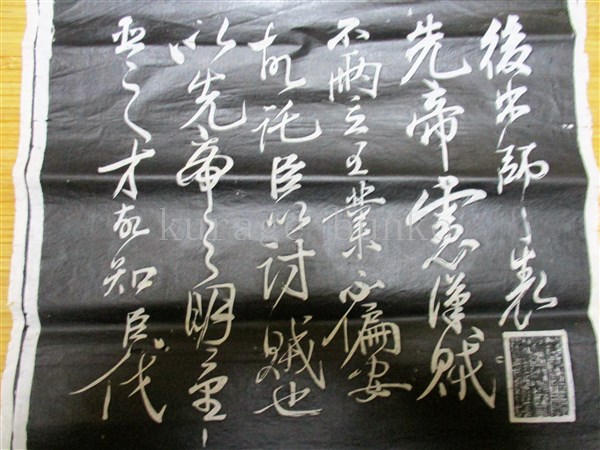 後出師之表
先帝慮漢賊
不両立王業不偏安
故託臣以討賊也
以先帝之明量
臣之才故知臣伐